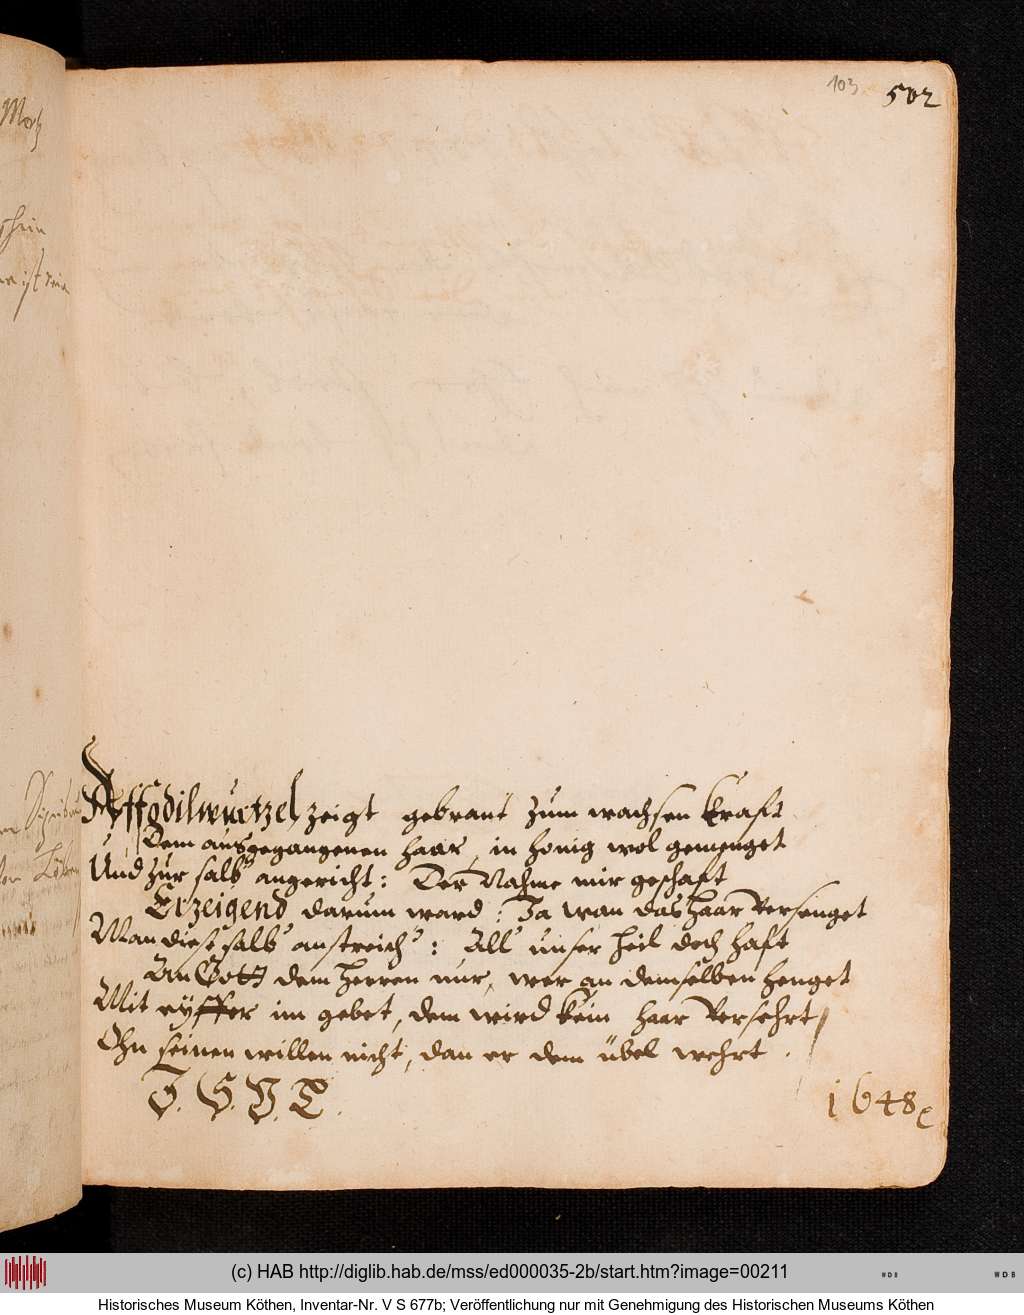 103
502
Affodilwurtzel zeigt gebrant zum wachsen krafft
Dem ausgegangenen haar, in honig wol gemenget
Und zur salb angericht: Der Nahme mir geschaft
Erzeigend darum ward: Ja wan das haar versenget
Man diese salb anstreich: All unser heil doch haft
An Gott dem Herren nur, wer an demselben henget
Mit eyffer im gebet, dem wird kein haar versehrt
Ohn seinen willen nicht, dan er dem übel wehrt.
1648
(c) HAB http://diglib.hab.de/mss/ed000035-2b/start.htm?image=00211
WDB
WDB
Historisches Museum Köthen, Inventar-Nr. V S 677b; Veröffentlichung nur mit Genehmigung des Historischen Museums Köthen